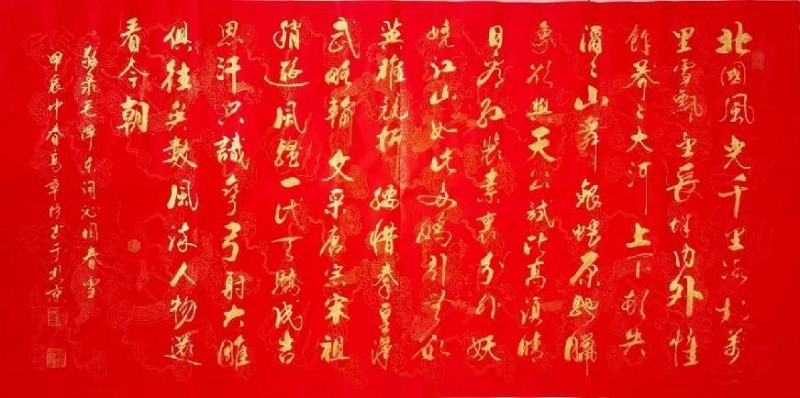 北國風光千里冰封萬
里雪飄望長城内外惟
餘莽々大河上下頓失
滔々山舞銀蛇原馳臘
象欲與天公試比高須晴
日看紅裝素裹分外妖
嬈江山如此多嬌引無數
英雄競折腰惜秦皇漢
武略輸文采唐宗宋祖
稍遜風騷一代天驕成吉
思汗只識彎弓射大雕
俱往矣數風流人物還
看今朝
敬录毛澤東詞沁園春雪
甲辰仲春书于北京